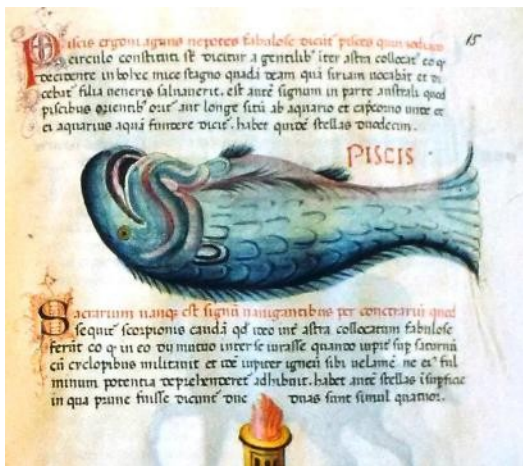 15
Piscis ergo magnus nepotes fabulose dicūt pisces quin zodiaco
circulo constituti st̄ dicitur a gentilib' iter astra collocat' eo q
decidente in bohec mice stagno quadā deam quā siriam uocabāt et di
cebāt filiā ueneris saluauerit. est autē signum in parte australi quod
piscibus orientib' orit' aut longe situ ab aquario et capcorno unde et
ei aquarius aquā fundere dicit'. habet quidē stellas duodecim.
PISCIS
Sacrarium nanq; est signū nauigantibus per contrariū quod
sequit' scorpionis caudā qd ideo int' astra collocatum fabulose
ferūt eo q in eo dii mutuo inter se iurasse quando iupit' sup saturnū
cū cyclopibus militauit et idē iupiter igneū sibi uelamē ne ei' ful
minum potentia deprehenderet' adhibuit. habet autē stellas ī supficie
in qua prune fuisse dicunt' due duas sunt simul quatuor.